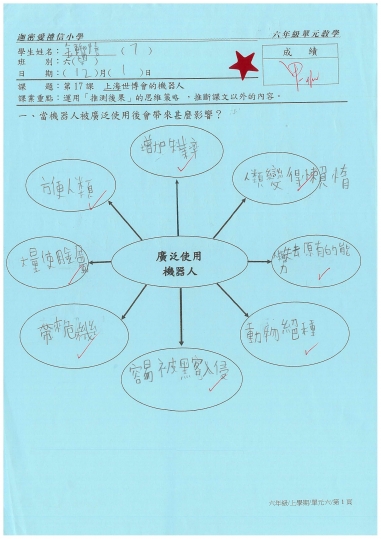 迦密愛禮信小學 六年級單元教學
學生姓名： (7)
班 別：六( ) 成 績
日 期：(12)月(1)日 甲
課 題：第17課 上海世博會的機器人
課業重點：運用「推測後果」的思維策略，推斷課文以外的內容。
一．當機器人被廣泛使用後會帶來甚麼影響？
增加失業率
方便人類
人類變得懶惰
廣泛使用
機器人
大量使用
失去原有的能
力
帶來危機
動物絕種
容易被黑客入侵
六年級/上學期/單元六/第1頁